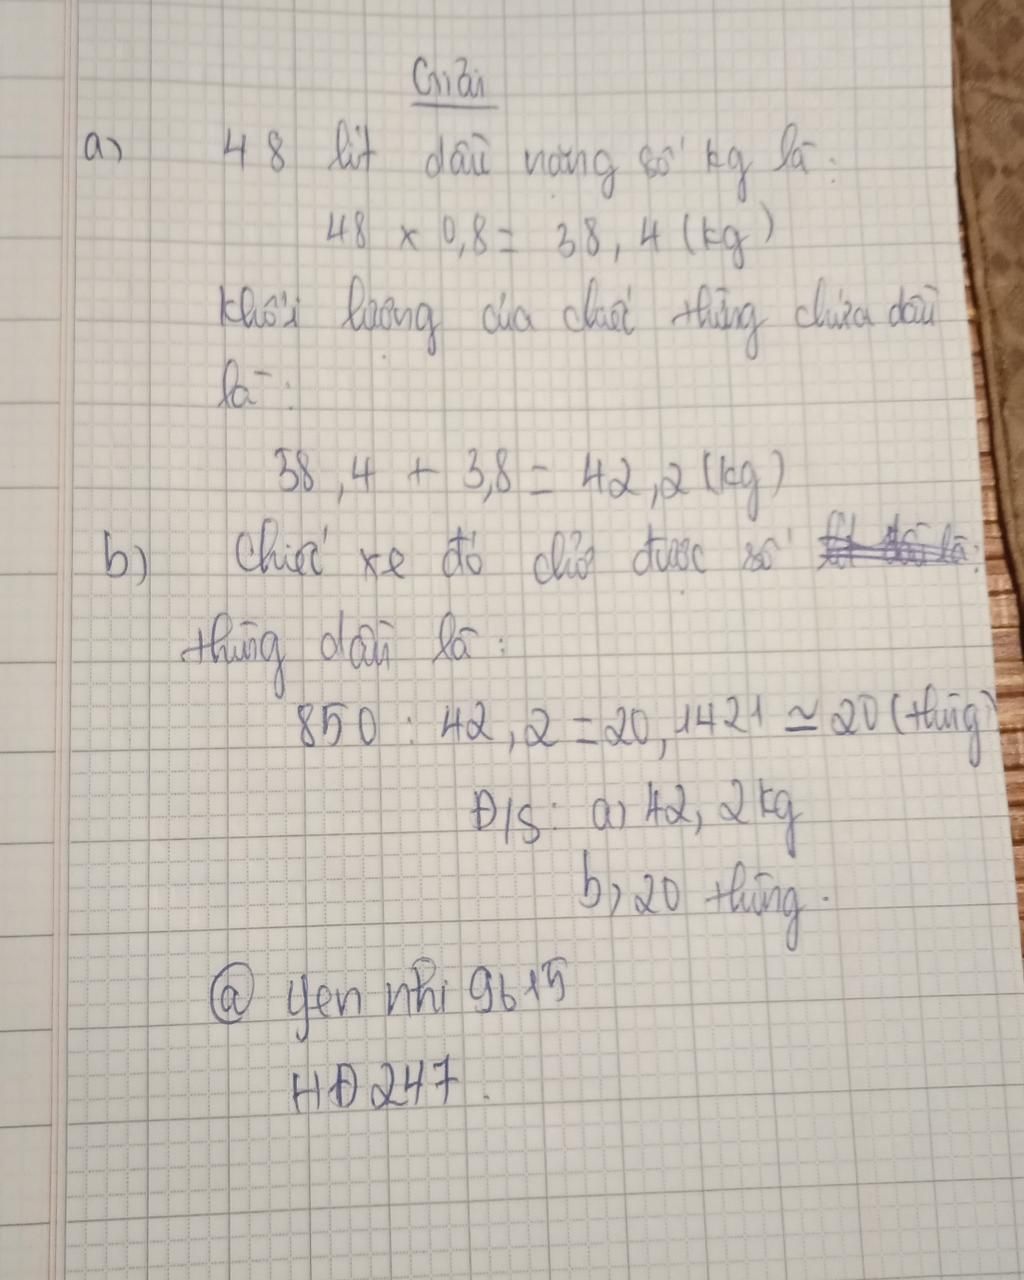 Giải
a) 48 lít dầu nặng số kg là:
48 x 0,8 = 38,4 (kg)
Khối lượng của chiếc thùng chứa dầu
là:
38,4 + 3,8 = 42,2 (kg)
b) Chiếc xe đó chở được số
thùng dầu là:
850 : 42,2 = 20,1421 ≃ 20 (thùng)
Đ/S: a) 42,2 kg
b) 20 thùng.
@ yen nhi 9b15
HĐ247.